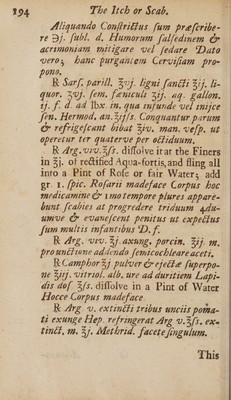 194 The Itch or Scab.
Aliquando Constrictus sum præscribe-
re ℈j. subl. d. Humorum salsedinem &
acrimoniam mitigare vel sedare Dato
vero; hanc purgantem Cervisiam pro-
pono.
R Sars. parill. ʒvj. ligni sancti ℥ij. li-
quor. ʒvj. sem. fæniculi ʒij. aq. gallon.
ij. f. d. ad lbx. in qua infunde vel injice
sen. Hermod. an. ℥ijſs. Conquantur parum
& refrigescant bibat ℥iv. man. vesp. ut
operetur ter quaterve per octiduum.
R Arg. viv. ℥ſs. dissolve it at the Finers
in ℥j. of rectified Aqua-fortis, and fling all
into a Pint of Rose or fair Water; add
gr. 1. spic. Rosarii madeface Corpus hoc
medicamine & imo tempore plures appare-
bunt scabies at progredere triduum 4du-
umve & evanescent penitus ut expectus
sum multis infantibus D. f.
R Arg. viv. ℥j. axung. porcin. ℥ij. m.
pro unctione addendo semicochleare aceti.
R Camphor ℥j pulver & ejectæ superpo-
ne ℥iij. vitriol. alb. ure ad duritiem Lapi-
dis dos ℥ſs. dissolve in a Pint of Water
Hocce Corpus madeface
R Arg v. extincti tribus unciis poma-
ti exunge Hep. refringerat Arg v. ℥ſs. ex-
tinct. m. ℥j. Methrid. facete singulum.
This